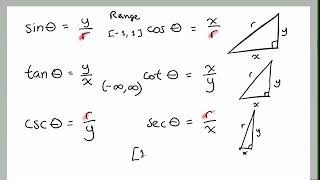 Range
sinθ = y/r [-1, 1] cosθ = x/r
tanθ = y/x (-∞,∞) cotθ = x/y
cscθ = r/y secθ = r/x
[1
r y x
r y x
r y x